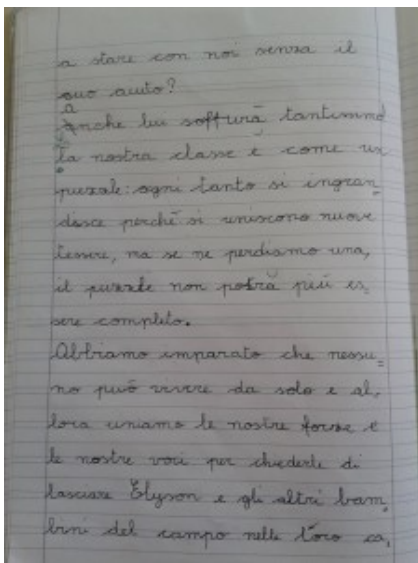 a stare con noi senza il
suo aiuto?
Anche lui soffrirà tantissimo
La nostra classe è come un
puzzle: ogni tanto si ingran=
disce perchè si uniscono nuove
tessere, ma se ne perdiamo una,
il puzzle non potrà più es=
sere completo.
Abbiamo imparato che nessu=
no può vivere da solo e al=
lora uniamo le nostre forze e
le nostre voci per chiederle di
lasciare Elyson e gli altri bam=
bini del campo nelle loro ca=